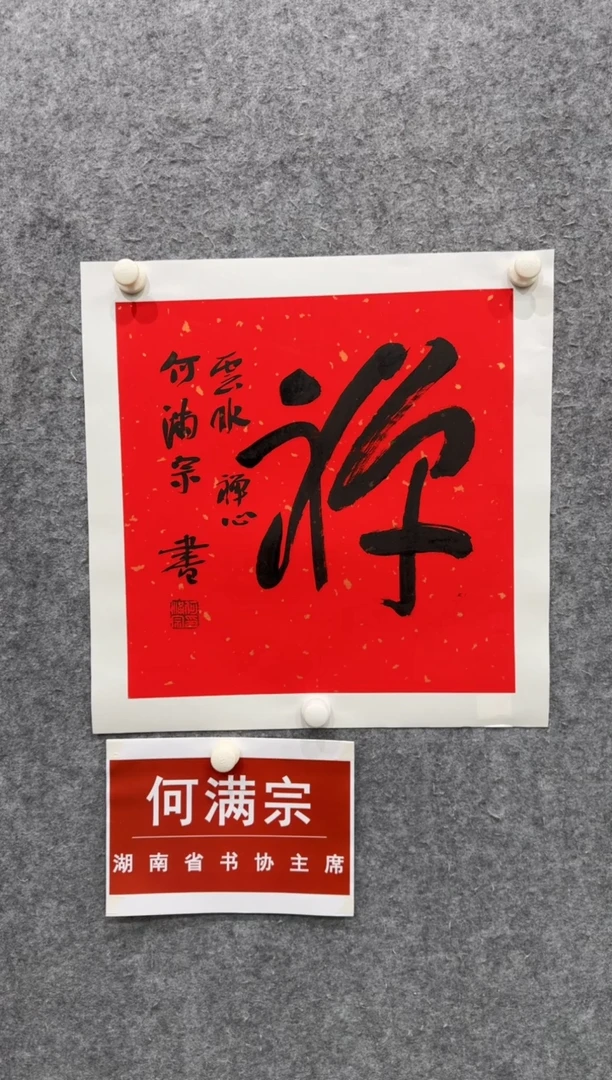 禅
雲水禅心
何满宗書
何满宗
湖南省书协主席